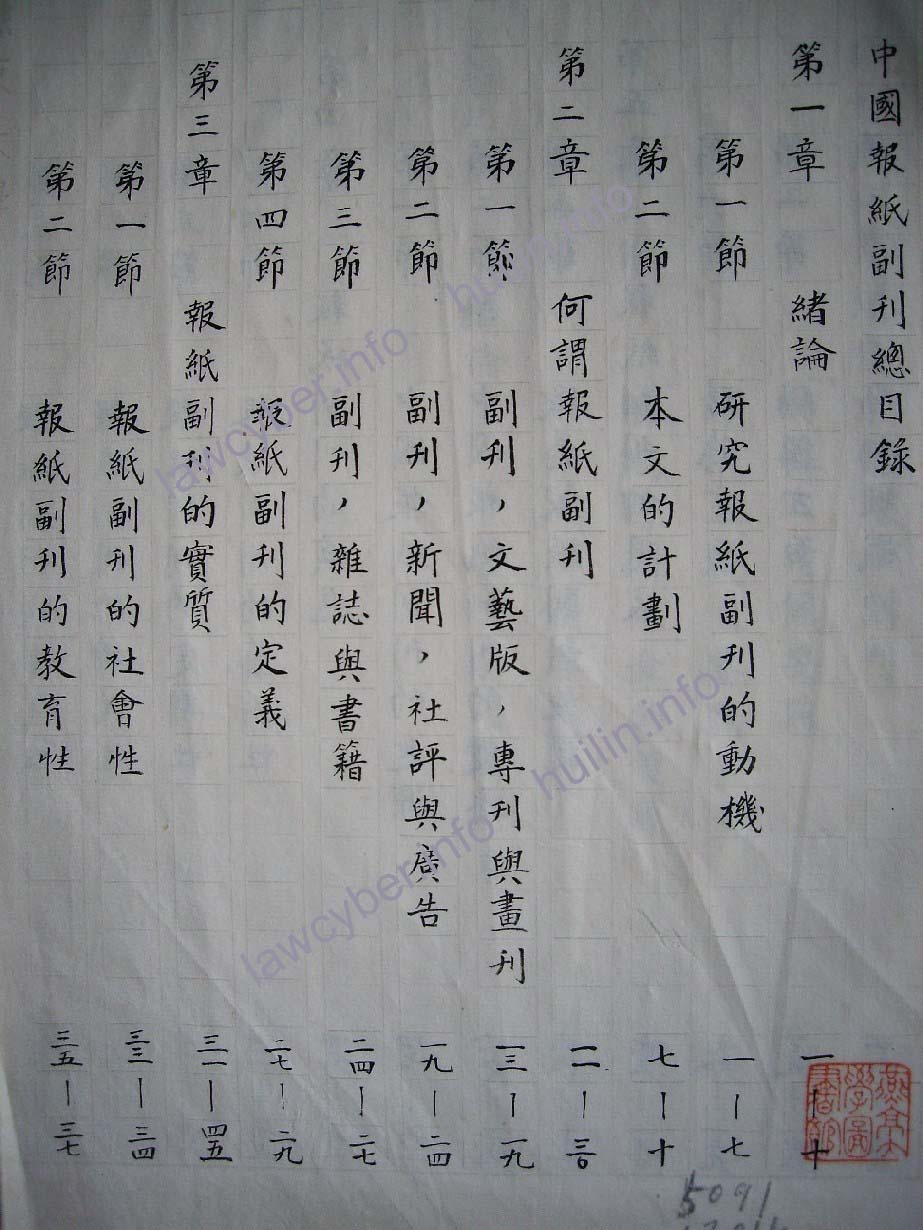 中國報紙副刊總目錄
第一章 緒論 一—十
第一節 研究報紙副刊的動機 一—七
第二節 本文的計劃 七—十
第二章 何謂報紙副刊 一一—三〇
第一節 副刊，文藝版，專刊與畫刊 一三—一九
第二節 副刊，新聞，社評與廣告 一九—二四
第三節 副刊，雜誌與書籍 二四—二七
第四節 報紙副刊的定義 二七—二九
第三章 報紙副刊的實質 三一—四五
第一節 報紙副刊的社會性 三三—三四
第二節 報紙副刊的教育性 三五—三七
燕京大學圖書館
5091
lawcyber.info huilin.info
lawcyber.info huilin.info